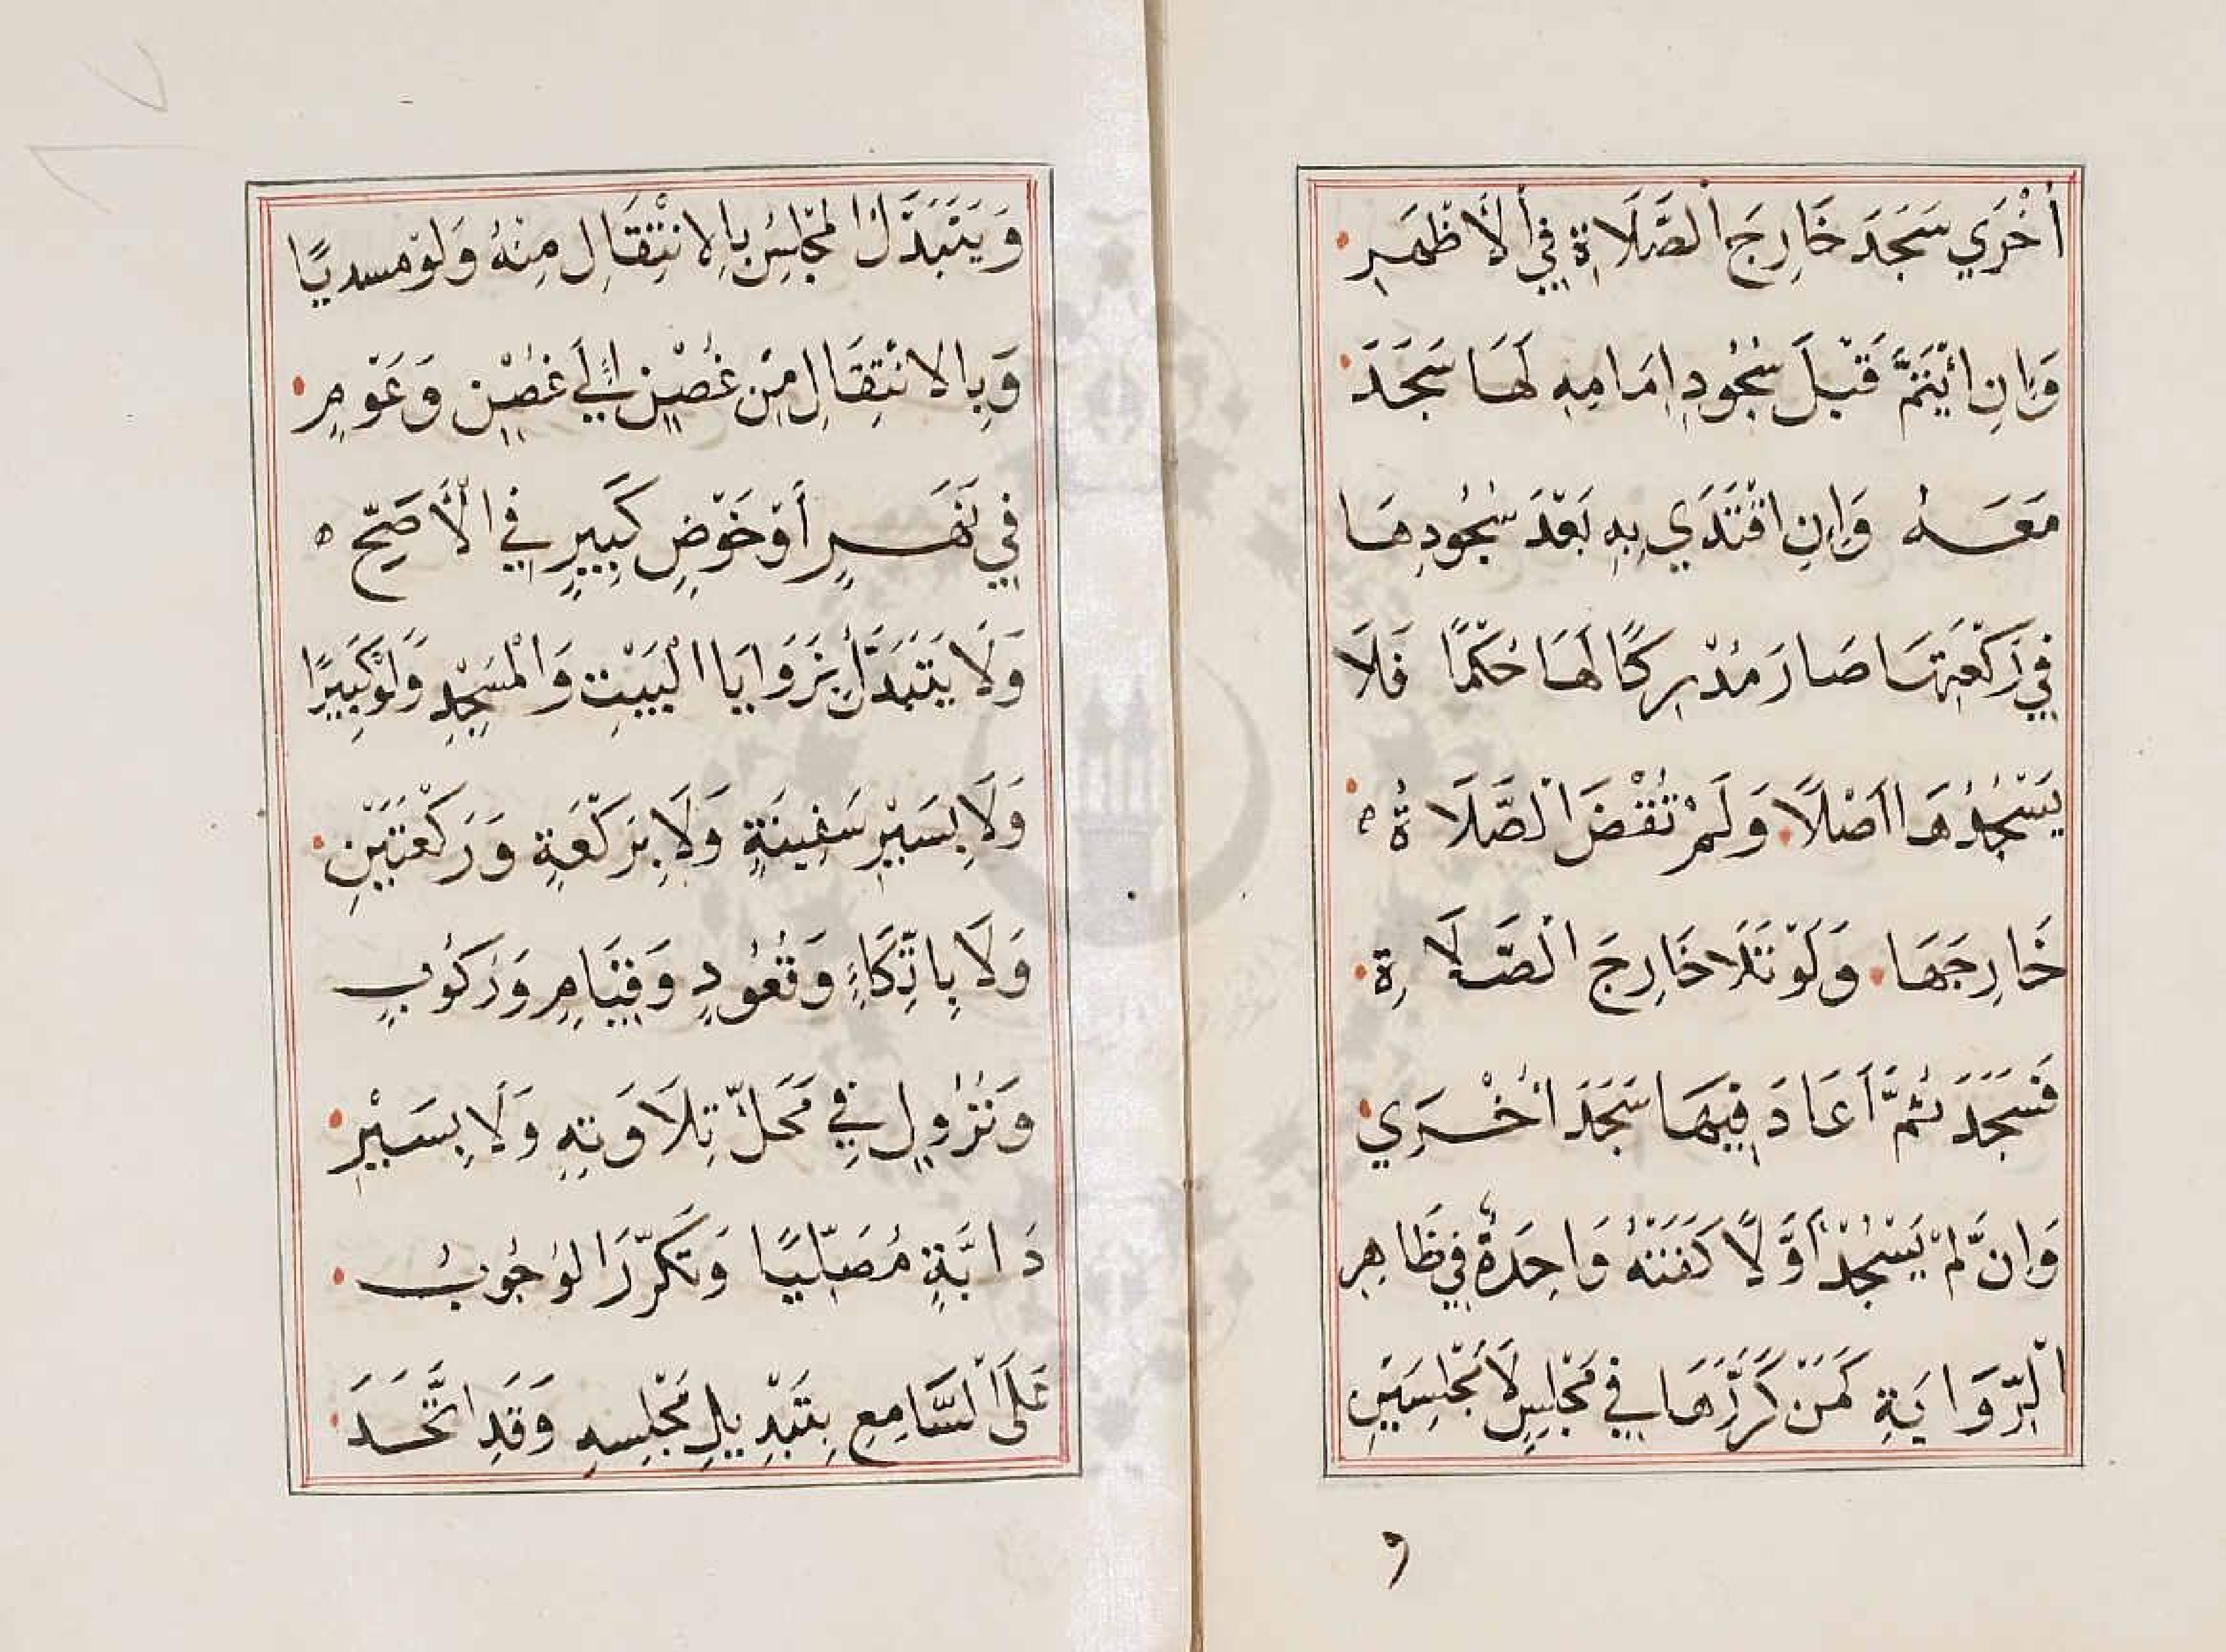 أُخْرَي سَجَدَ خَارِجَ الصَّلَاةِ فِي الْأَظْهَرِ
وَاِنِ ائْتَمَّ قَبْلَ سُجُودِ اِمَامِهِ لَهَا سَجَدَ
مَعَهُ وَاِنِ اقْتَدَي بِهِ بَعْدَ سُجُودِهَا
فِي رَكْعَتِهَا صَارَ مُدْرِكًا لَهَا حُكْمًا فَلَا
يَسْجُدُهَا اَصْلًا وَلَمْ تُقْضَ الصَّلَاةُ
خَارِجَهَا وَلَوْ تَلَا خَارِجَ الصَّلَاةِ
فَسَجَدَ ثُمَّ اَعَادَ فِيهَا سَجَدَ اُخْرَي
وَاِن لَّمْ يَسْجُدْ اَوَّلًا كَفَتْهُ وَاحِدَةٌ فِي ظَاهِرِ
الرِّوَايَةِ كَمَنْ كَرَّرَهَا فِي مَجْلِسٍ لَا مَجْلِسَيْنِ
و
وَيَتَبَدَّلُ الْمَجْلِسُ بِالِانْتِقَالِ مِنْهُ وَلَوْ مسديًا
وَبِالانْتِقَالِ مِنْ غُصْنٍ اِلَي غُصْنٍ وَعَوْمٍ
فِي نَهَرٍ أَوْ حَوْضٍ كَبِيرٍ فِي الْأَصَحِّ ه
وَلَا يَتَبَدَّلُ بِزَوَايَا الْبَيْتِ وَالْمَسْجِدِ وَلَوْ كَبِيرًا
وَلَا بِسَيْرِ سَفِينَةٍ وَلَا بِرَكْعَةٍ وَرَكْعَتَيْنِ
وَلَا بِاتِّكَاءٍ وَقُعُودٍ وَقِيَامٍ وَرُكُوبٍ
وَنُزُولٍ فِي مَحَلِّ تِلَاوَتِهِ وَلَا بِسَيْرِ
دَابَّةٍ مُصَلِّيًا وَتَكَرَّرَ الوُجُوبُ
عَلَى السَّامِعِ بِتَبْدِيلِ مَجْلِسِهِ وَقَدِ اتَّحَدَ